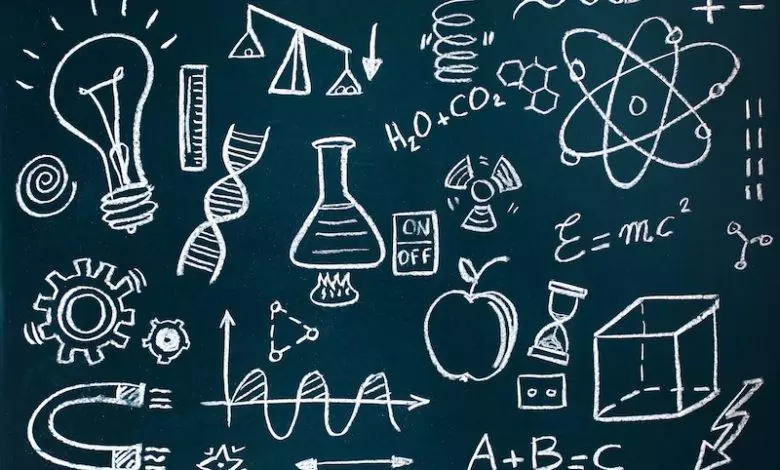 H₂O + CO₂
ON
OFF
E = mc²
A + B = C